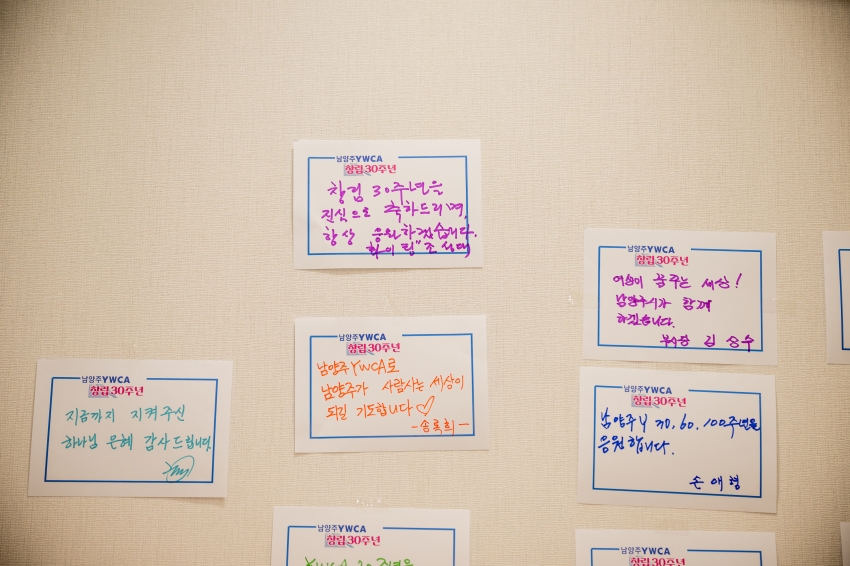 남양주YWCA
창립30주년
창립 30주년을
진심으로 축하드리며,
항상 응원하겠습니다.
화이팅" 조성대
남양주YWCA
창립30주년
여성이 꿈꾸는 세상!
남양주시가 함께
하겠습니다.
부시장 김상수
남양주YWCA
창립30주년
남양주YWCA로
남양주가 사람사는 세상이
되길 기도합니다♡
-송록희-
남양주YWCA
창립30주년
지금까지 지켜주신
하나님 은혜 감사드립니다
남양주YWCA
창립30주년
남양주Y 30, 60, 100주년을
응원합니다.
손애형
남양주YWCA
창립30주년
YWCA 30주년을
남양주YWCA
창립30주년